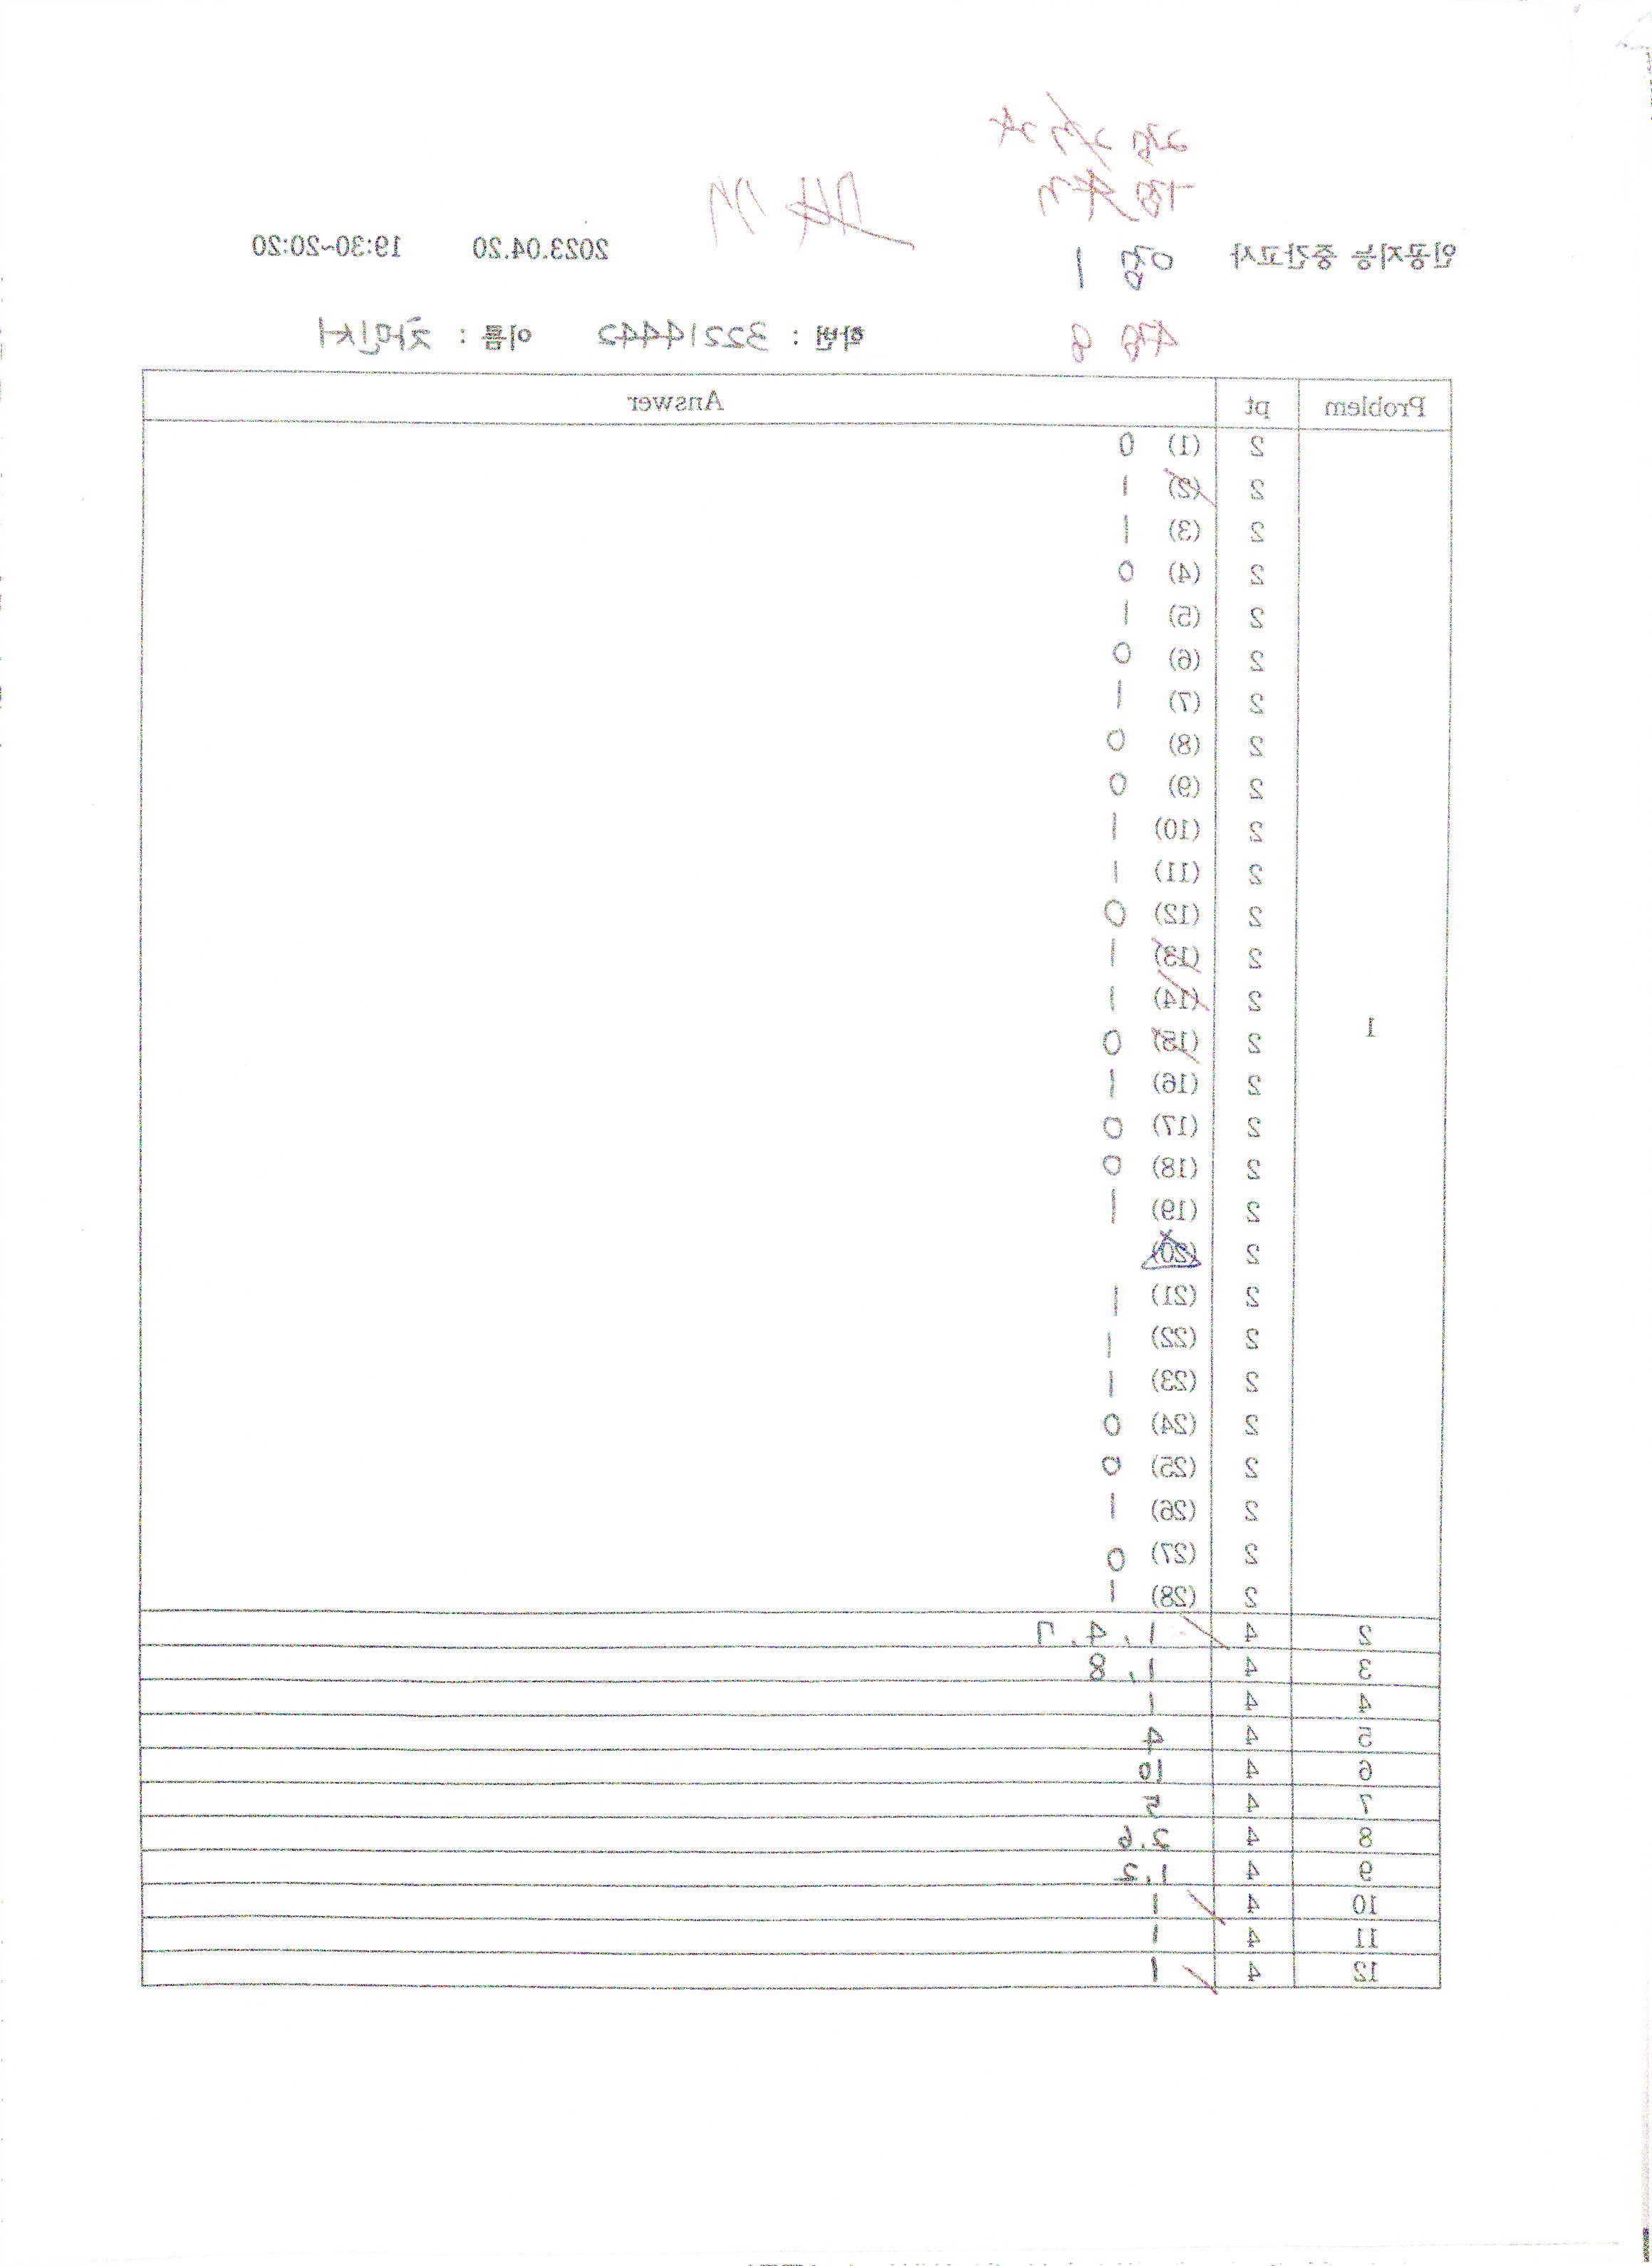 인공지능 중간고사 2023.04.20 19:30~20:20
0점 1
4점 8
학번 : 32214442 이름 : 차민서
Problem pt Answer
1
2 (1) 0
2 (2) 1
2 (3) 1
2 (4) 0
2 (5) 1
2 (6) 0
2 (7) 1
2 (8) 0
2 (9) 0
2 (10) 1
2 (11) 1
2 (12) 0
2 (13) 1
2 (14) 1
2 (15) 0
2 (16) 1
2 (17) 0
2 (18) 0
2 (19) 1
2 (20)
2 (21) 1
2 (22) 1
2 (23) 1
2 (24) 0
2 (25) 0
2 (26) 1
2 (27) 0
2 (28) 1
2 4 1, 4, 7
3 4 1, 8
4 4 1
5 4 4
6 4 10
7 4 5
8 4 2.6
9 4 1.2
10 4 1
11 4 1
12 4 1